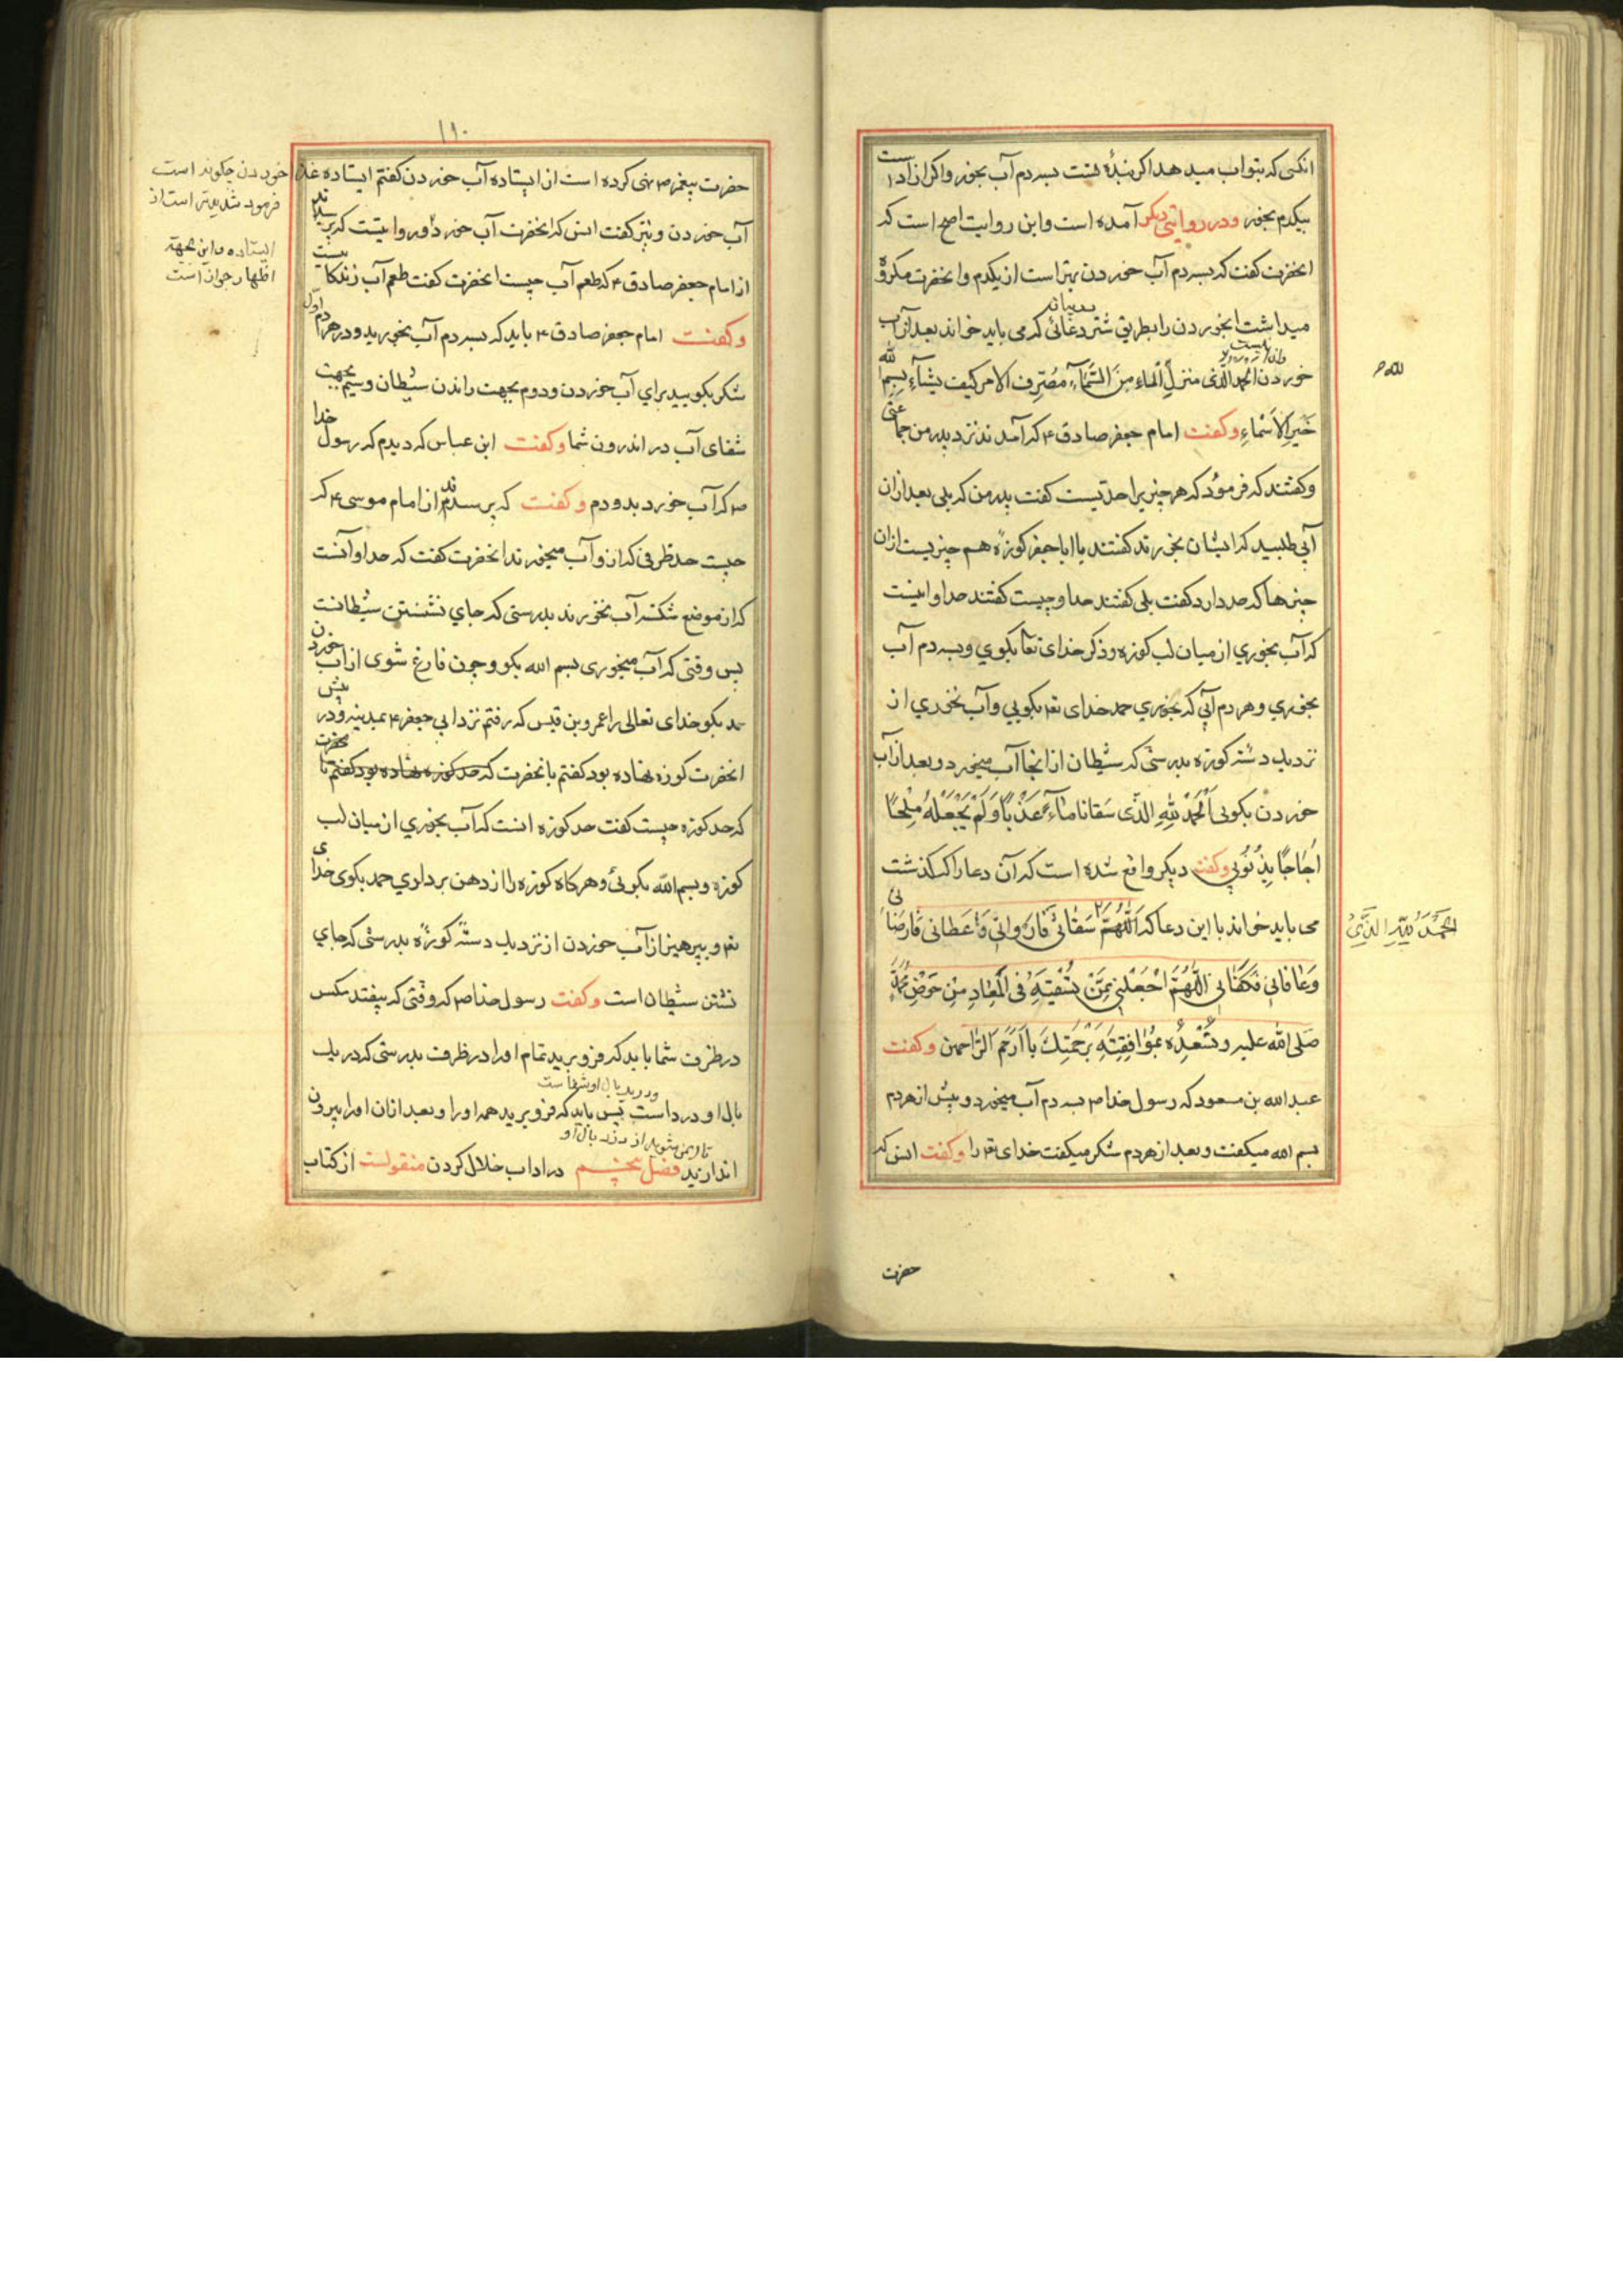 انکسی که بتو اب میدهد اکر بندهٔ تست بسه دم آب بخور و اکر ازاد است
بیکدم بخور و در روایتی دیکر آمده است و این روایت اصح است که
انحضرت کفت که بسه دم آب خوردن بهتر است از یکدم و انحضرت مکروه
میداشت ابخوردن را بطریق شتر دعائی که می باید خواند بعد از آب
خوردن الحمد لله الذی منزل الماء من السماء مصرف الامر کیف یشاء بسم الله
خیر الاسماء و کفت امام جعفر صادق ۴ که آمدند نزد پدر من جماعتی
و کفتند که فرمؤد که هر چیز یرا حدیست کفت پدر من که بلی بعد ازان
آبی طلبید که ایشان بخورند کفتند یا ابا جعفر کوزه هم چیزیست ازان
چیزها که حد دارد کفت بلی کفتند حد او چیست کفتند حد او اینست
که آب بخوری از میان لب کوزه و ذکر خدای تعا بکوی و بسه دم آب
بخوری و هر دم آبی که بخوری حمد خدای تعه بکویی و آب نخوری از
نزدیك دسته کوزه بدرستی که شیطان از انجا آب میخورد و بعد از آب
خوردن بکوبی اَلْحَمْدُ لِلّهِ الذّی سَقانا ماءً عَذْبًا وَلَمْ یَجْعَلْهُ مِلْحًا
اُجاجًا بِذُنُوبی و کفت دیکر واقع شده است که آن دعا را که کذشت
می باید خواند با این دعا که اَللّهُمَّ سَقانی فَاَرْوانی وَاَعْطانی فَاَرْضانی
الحَمْدُ لِلّهِ الذَّی
وَعافانی فَکَفانی اَللّهُمَّ اجْعَلنی مِمَّنْ تُسْقیَهِ فی الْمَعادِ مِنْ حَوْضِ مُحَمَّدٍ
صَلی الله علیه و تُسْعِدُه بِمُوافِقَتِهِ بِرَحْمَتِكَ یا اَرْحَمَ الرّاحمین و کفت
عبد الله بن مسعود که رسول خدا ص بسه دم آب میخورد و پیش از هر دم
بسم الله میکفت و بعد از هر دم شکر میکفت خدای تعه را و کفت انس که
حضرت
۱۹۰
حضرت پیغمبر ص نهی کرده است از ایستاده آب خوردن کفتم ایستاده غذا
خوردن چکونه است
فرمود شدیدتر است از
ایستاده و این بجهة
اظهار جواز است
آب خوردن و نیز کفت انس که انحضرت آب خورد و روایتست که پرسیدند
از امام جعفر صادق ۴ که طعم آب چیست انحضرت کفت طعم آب زندکانیست
و کفت امام جعفر صادق ۴ باید که بسه دم آب بخورید و در هر دم اول
شکر بکویید برای آب خوردن و دوم بجهت راندن شیطان و سیم بجهت
شفای آب در اندرون شما و کفت ابن عباس که دیدم که رسول خدا
ص که آب خورد بدو دم و کفت که پرسیدند از امام موسی ۴ که
چیست حد ظرفی که ازو آب میخورند انحضرت کفت که حد او آنست
که از موضع شکسته آب نخورند بدرستی که جای نشستن شیطانست
پس وقتی که آب میخوری بسم الله بکو و چون فارغ شوی از آب خوردن
حمد بکو خدای تعالی را عمرو بن قیس که رفتم نزد ابی جعفر ۴ بمدینه و در پیش
انحضرت کوزه نهاده بود کفتم بانحضرت که حد کوزه نهاده بود کفتم
که حد کوزه چیست کفت حد کوزه انست که آب بخوری از میان لب
کوزه و بسم الله بکوئی و هر کاه کوزه را از دهن برداری حمد بکوی خدای
تعه و بپرهیز از آب خوردن از نزدیك دسته کوزه بدرستی که جای
نشستن شیطان است و کفت رسول خدا ص که وقتی که بیفتد مکس
در ظرف شما باید که فرو برید تمام اورا در ظرف بدرستی که در یك
و در یك بال او شفاست
بال او درد است پس باید که فرو برید همه اورا و بعد ازان اورا بیرون
اندازید فصل پنجم در اداب خلال کردن منقولست از کتاب